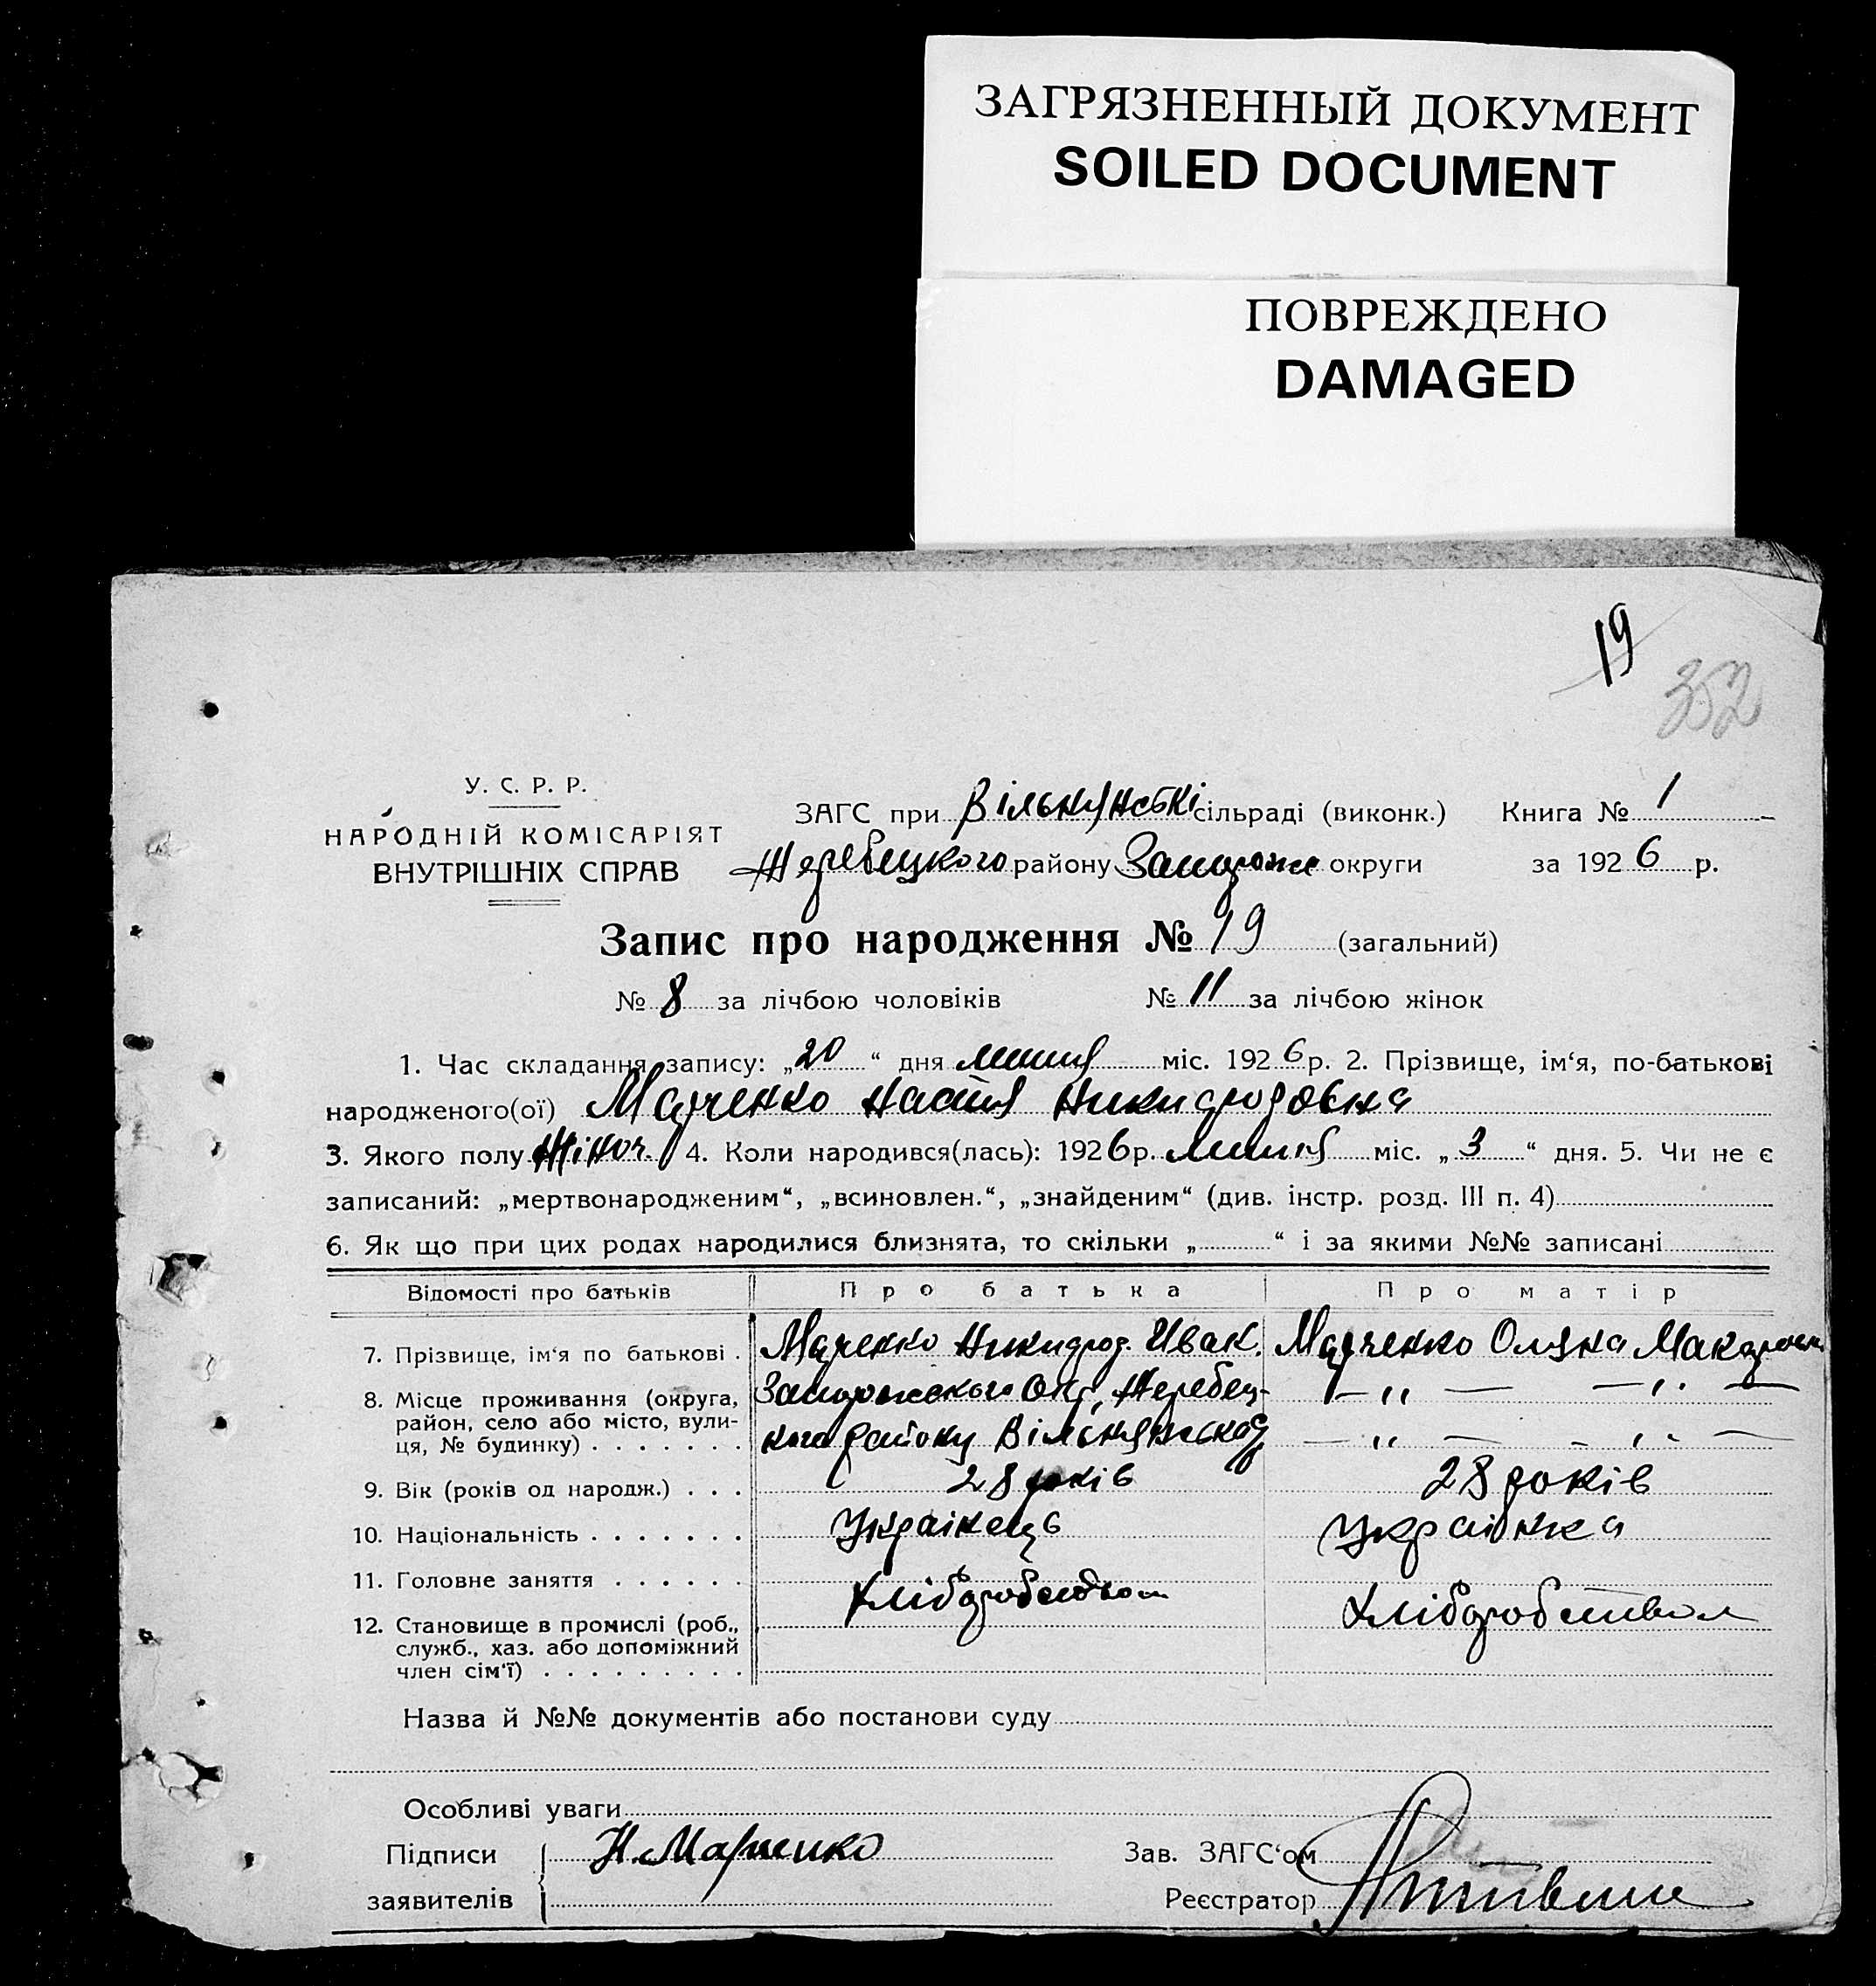 ЗАГРЯЗНЕННЫЙ ДОКУМЕНТ
SOILED DOCUMENT
ПОВРЕЖДЕНО
DAMAGED
19
352
У. С. Р. Р.
НАРОДНІЙ КОМІСАРІЯТ
ВНУТРІШНІХ СПРАВ
ЗАГС при Вільнянські сільраді (виконк.) Книга № 1
Жеребецкого району Запорожс округи за 1926 р.
Запис про народження № 19 (загальний)
№ 8 за лічбою чоловіків № 11 за лічбою жінок
1. Час складання запису: „20“ дня липня міс. 1926 р. 2. Прізвище, ім‘я, по-батькові
народженого(ої) Марченко Настя Никифоровна
3. Якого полу Жіноч. 4. Коли народився(лась): 1926 р. липня міс. „3“ дня. 5. Чи не є
записаний: „мертвонародженим“, „всиновлен.“, „знайденим“ (див. інстр. розд. III п. 4)
6. Як що при цих родах народилися близнята, то скільки „ “ і за якими №№ записані
Відомості про батьків Про батька Про матір
7. Прізвище, ім‘я по батькові . Марченко Никифор. Ивак. Марченко Оляна Макаровн
8. Місце проживання (округа, район, село або місто, вулиця, № будинку) . . . . . . . Запорожского Окр, Жеребецкого району Вільнянської — „ — — „ —
— „ — - „ —
9. Вік (років од народж.) . . . 28 років 28 років
10. Національність . . . . . . . Українець Українка
11. Головне заняття . . . . . . Хліборобством Хліборобством
12. Становище в промислі (роб., служб., хаз. або допоміжний член сім‘ї) . . . . . . . . .
Назва й №№ документів або постанови суду
Особливі уваги
Підписи заявителів Н. Марченко
Зав. ЗАГС‘ом
Реєстратор